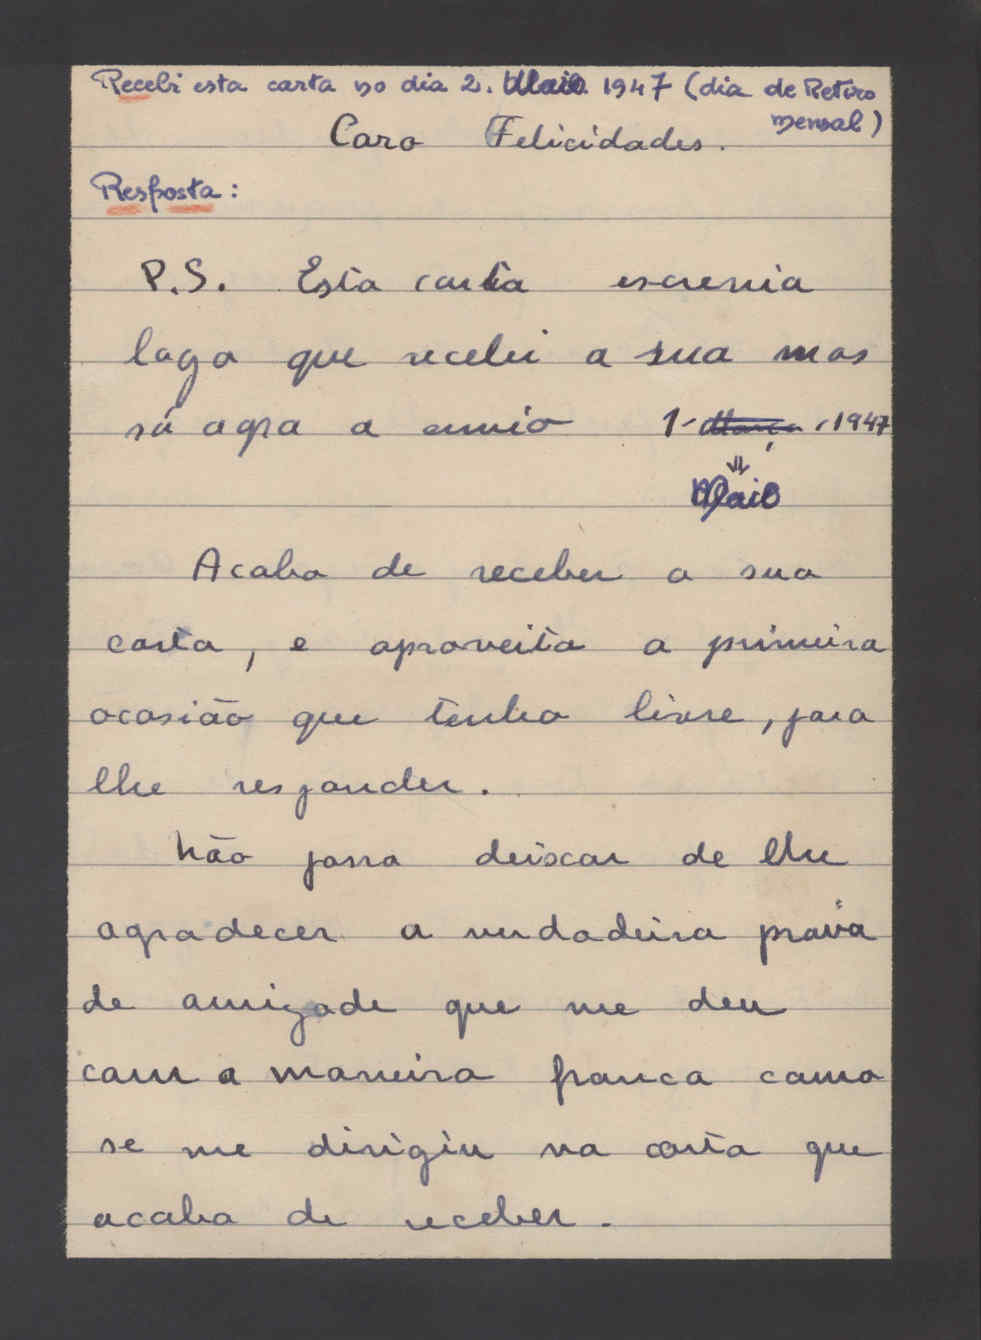 Recebi esta carta no dia 2. Maio. 1947 (dia de Retiro
mensal)
Caro Felicidades.
Resposta:
P.S. Esta carta escrevia
logo que recebi a sua mas
só agora a envio 1- Março. 1947
Maio
Acabo de receber a sua
carta, e aproveito a primeira
ocasião que tenho livre, para
lhe responder.
Não posso deixar de lhe
agradecer a verdadeira prova
de amizade que me deu
com a maneira franca como
se me dirigiu na carta que
acabo de receber.